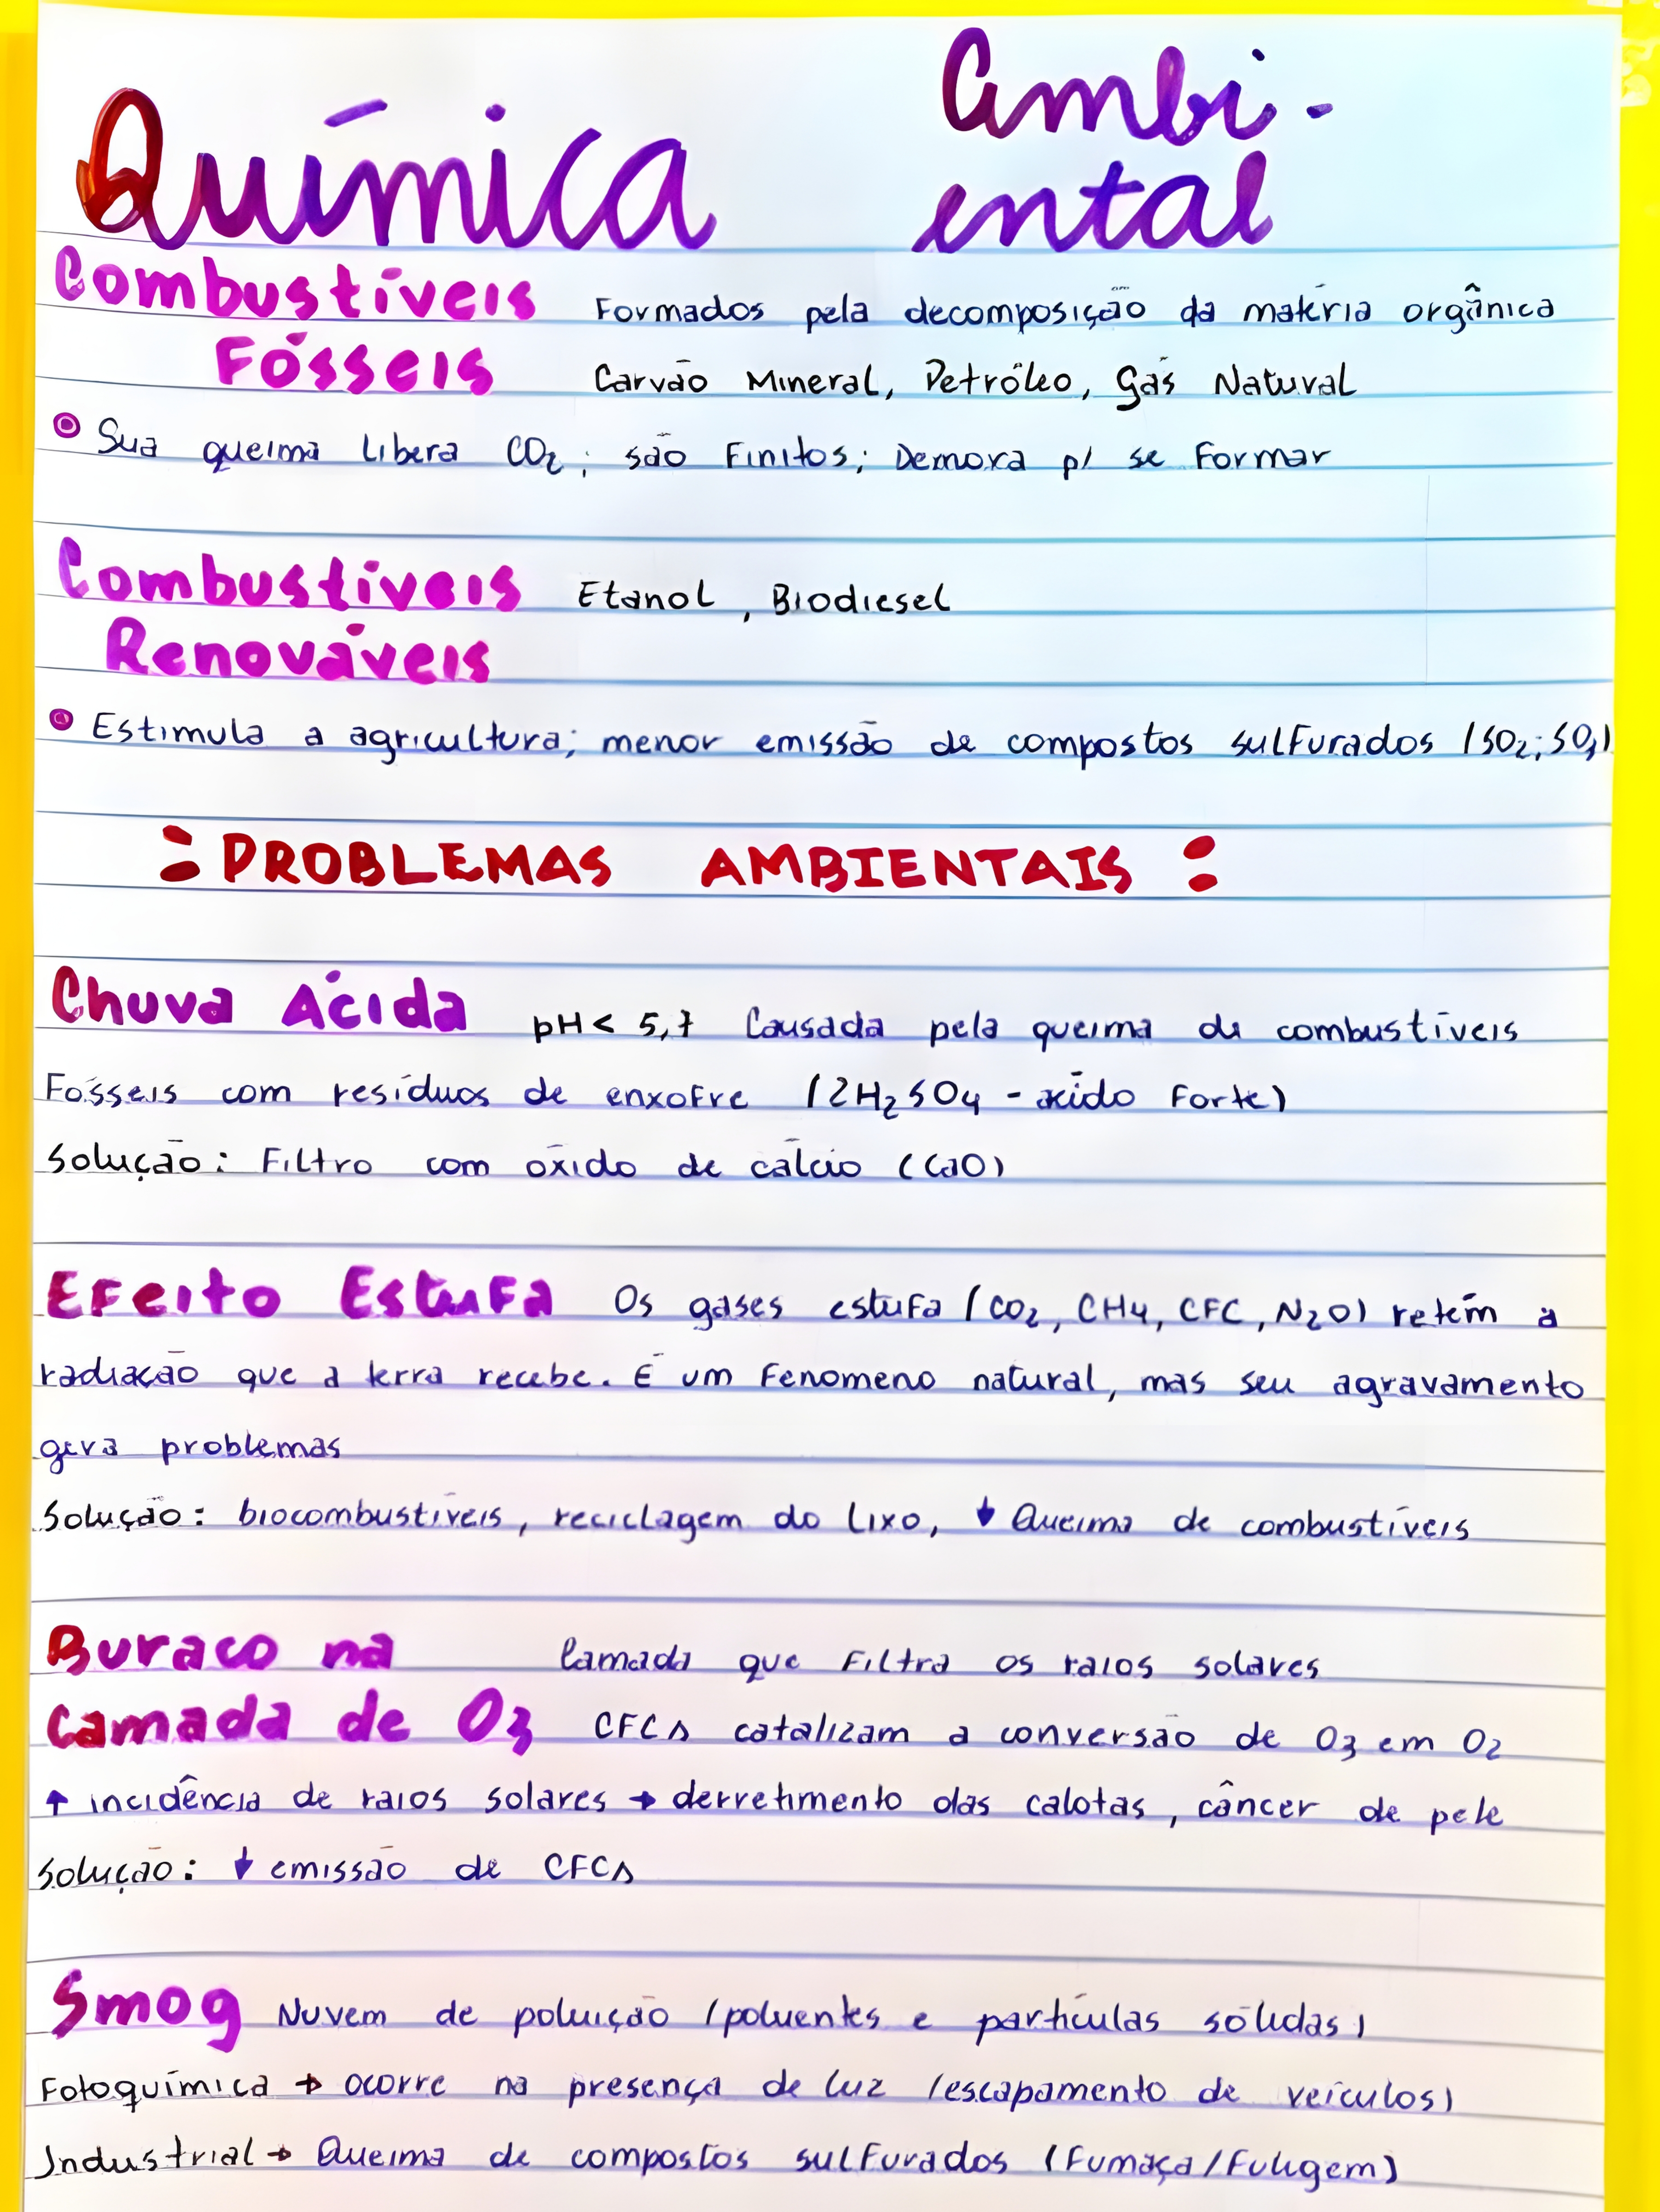 Química Ambi-
ental
Combustíveis Formados pela decomposição da matéria orgânica
Fósseis Carvão Mineral, Petróleo, Gás Natural
Sua queima libera CO₂; são Finitos; Demora p/ se Formar
Combustíveis Etanol, Biodiesel
Renováveis
Estimula a agricultura; menor emissão de compostos sulfurados (SO₂; SO₃)
: PROBLEMAS AMBIENTAIS :
Chuva Ácida pH < 5,7 Causada pela queima de combustíveis
Fósseis com resíduos de enxofre (2H₂SO₄ - ácido Forte)
Solução: Filtro com óxido de cálcio (CaO)
Efeito Estufa Os gases estufa (CO₂, CH₄, CFC, N₂O) retém a
radiação que a terra recebe. É um Fenomeno natural, mas seu agravamento
gera problemas
Solução: biocombustíveis, reciclagem do lixo, ↓ Queima de combustíveis
Buraco na Camada que Filtra os raios solares
Camada de O₃ CFCs catalizam a conversão de O₃ em O₂
↑ incidência de raios solares → derretimento das calotas, câncer de pele
Solução: ↓ emissão de CFCs
Smog Nuvem de poluição (poluentes e partículas sólidas)
Fotoquímica → ocorre na presença de luz (escapamento de veículos)
Industrial → Queima de compostos sulfurados (Fumaça/Fuligem)